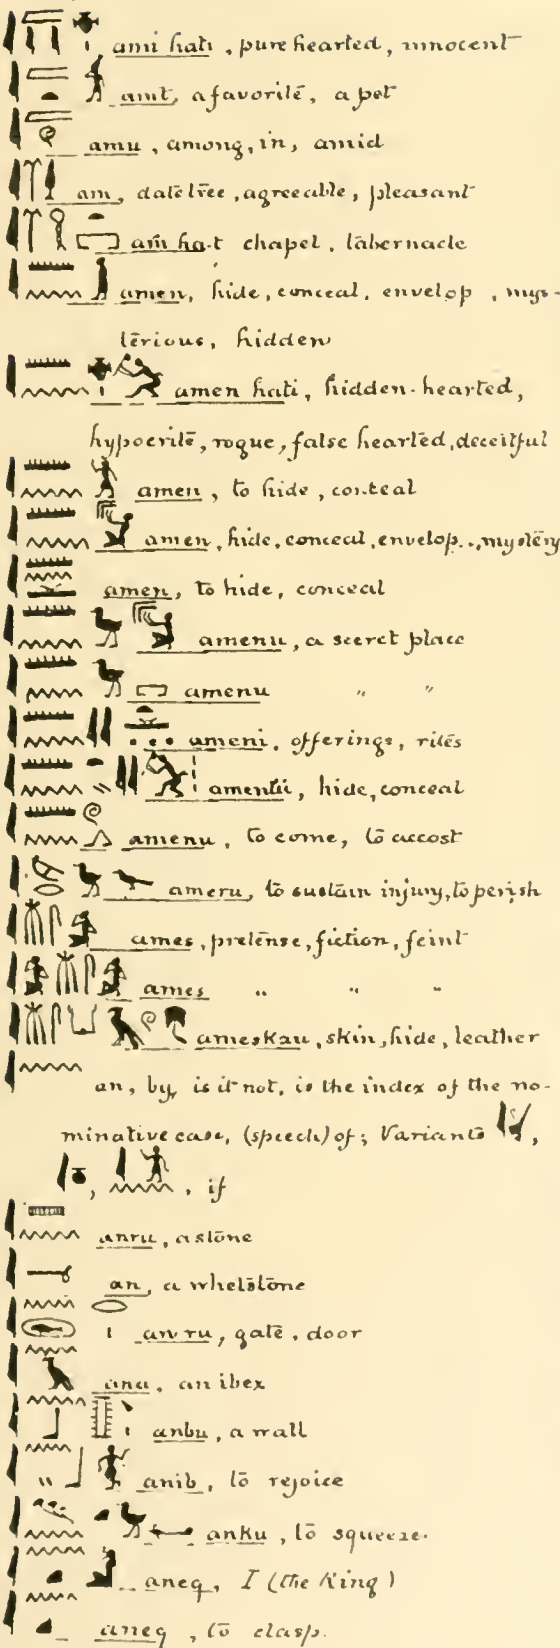 ami hati, pure hearted, innocent
amt, a favorite, a pet
amu, among, in, amid
am, date tree, agreeable, pleasant
am ha-t chapel, tabernacle
amen, hide, conceal, envelop, mys-
terious, hidden
amen hati, hidden-hearted,
hypocrite, rogue, false hearted, deceitful
amen, to hide, conceal
amen, hide, conceal, envelop.., mystery
amen, to hide, conceal
amenu, a secret place
amenu " "
ameni, offerings, rites
amentii, hide, conceal
amenu, to come, to accost
ameru, to sustain injury, to perish
ames, pretense, fiction, feint
ames " " "
ameskau, skin, hide, leather
an, by, is it not, is the index of the no-
minative case, (speech) of; Variants ,
, , if
anru, a stone
an, a whetstone
an ru, gate, door
ana, an ibex
anbu, a wall
anib, to rejoice
anku, to squeeze.
aneq, I (the King)
aneq, to clasp.